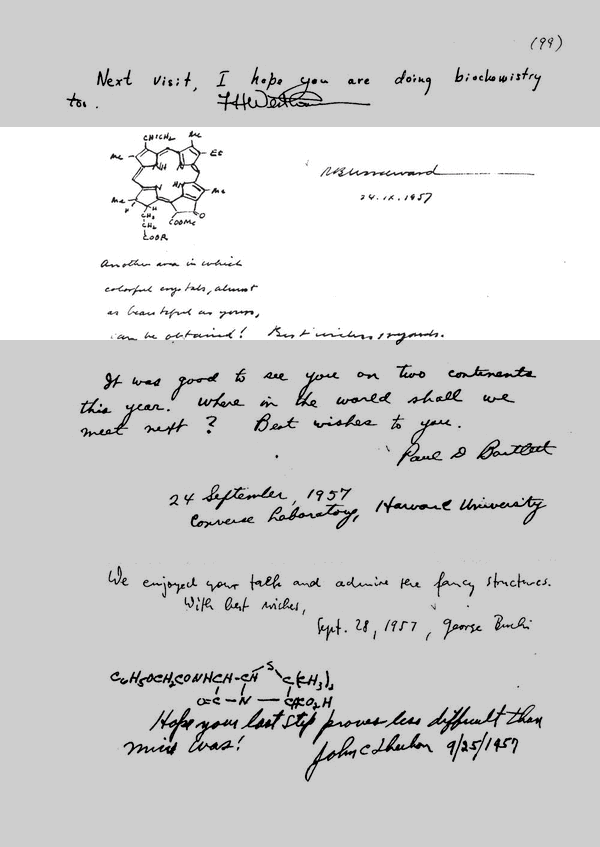 (99)
Next visit, I hope you are doing biochemistry
too. FHWestheimer
CHICH₂ Me
Me Et
NH N
N HN
Me Me
H H O
CH₂ COOMe
CH₂
COOR
RBWoodward
24.IX.1957
Another area in which
colorful crystals, almost
as beautiful as yours,
can be obtained! Best wishes, regards.
It was good to see you on two continents
this year. Where in the world shall we
meet next? Best wishes to you.
Paul D Bartlett
24 September, 1957
Converse Laboratory, Harvard University
We enjoyed your talk and admire the fancy structures.
With best wishes,
Sept. 28, 1957, George Büchi
C₆H₅OCH₂CONHCH-CH S C(CH₃)₂
O=C - N — CHCO₂H
Hope your last step proves less difficult than
mine was!
John C Sheehan 9/25/1957